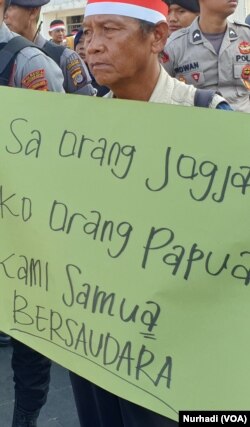 Sa orang Jogja
Ko orang Papua
Kami Samua
BERSAUDARA
Nurhadi (VOA)